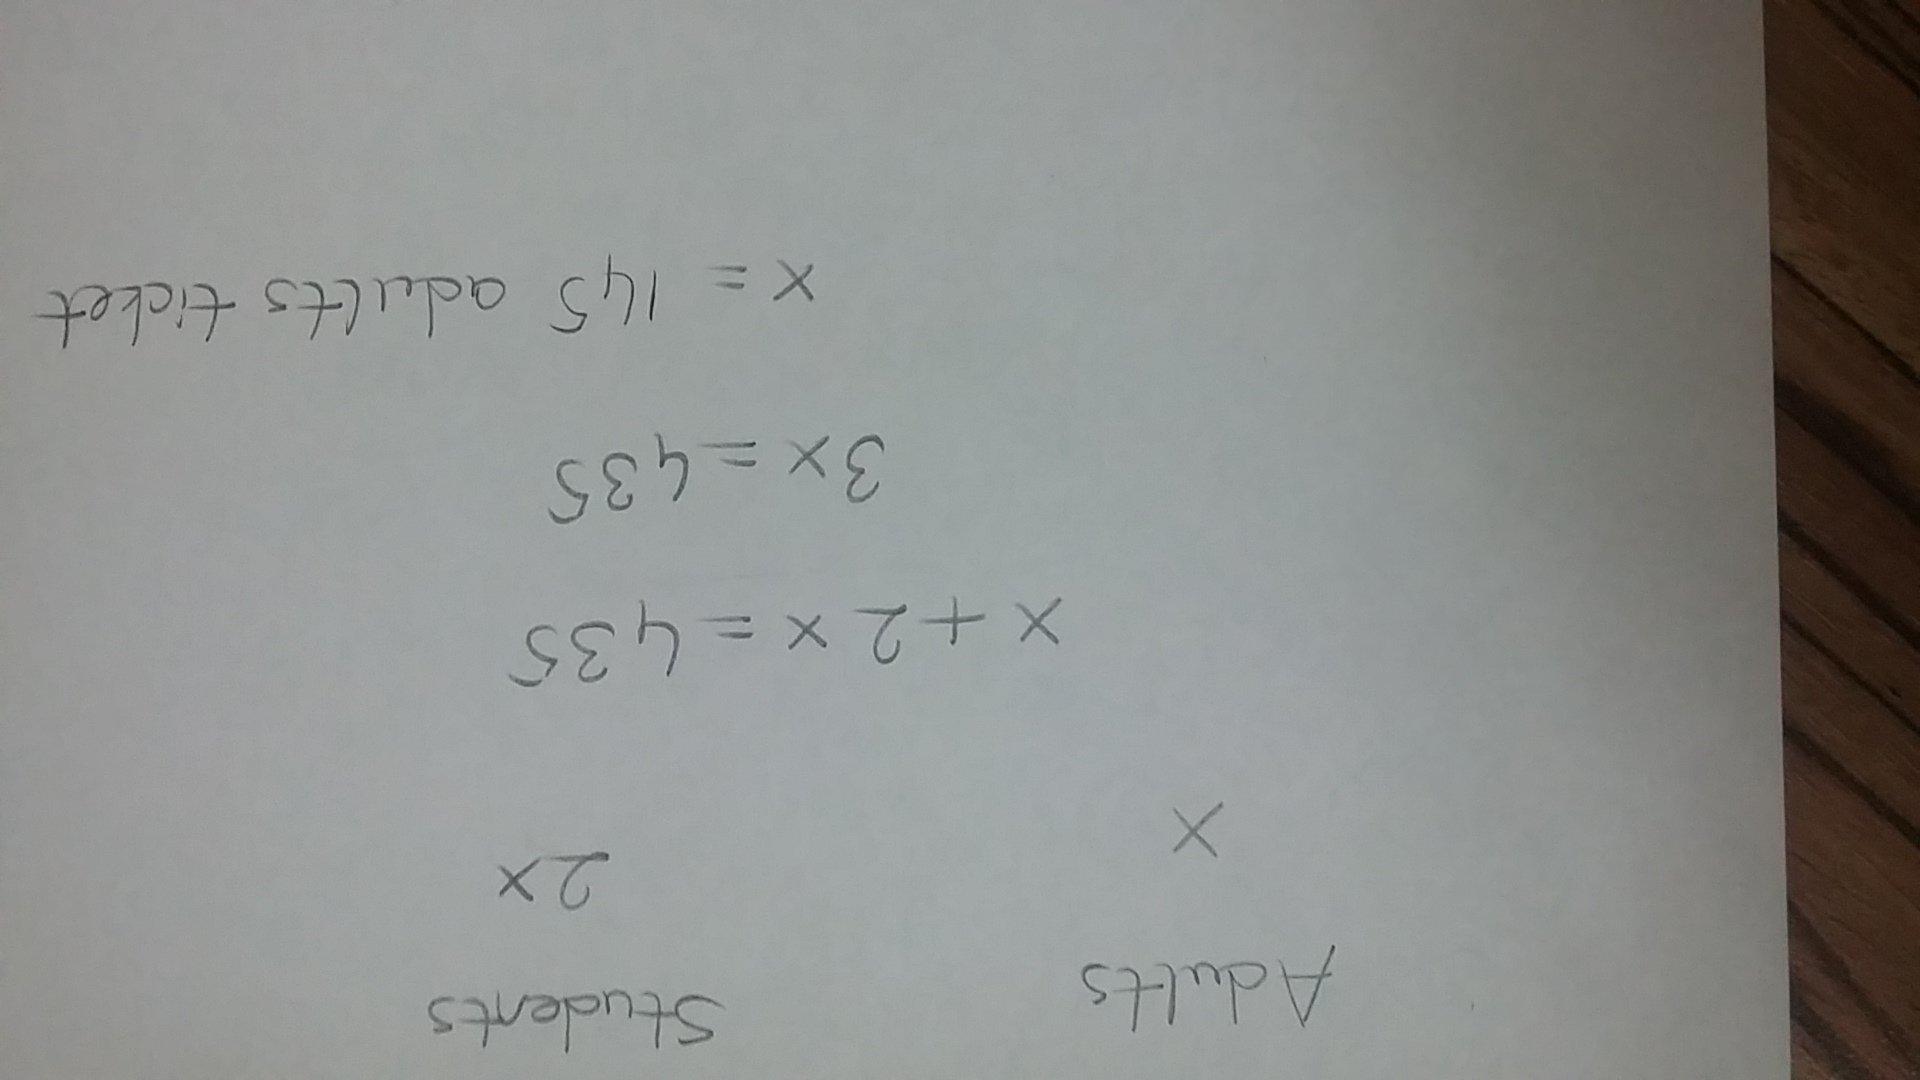 Adults Students
x 2x
x + 2x = 435
3x = 435
x = 145 adults ticket